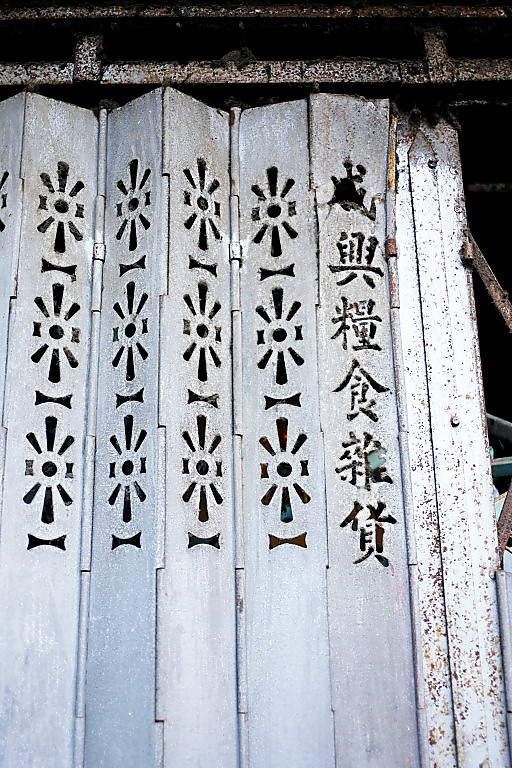 成興糧食雜貨